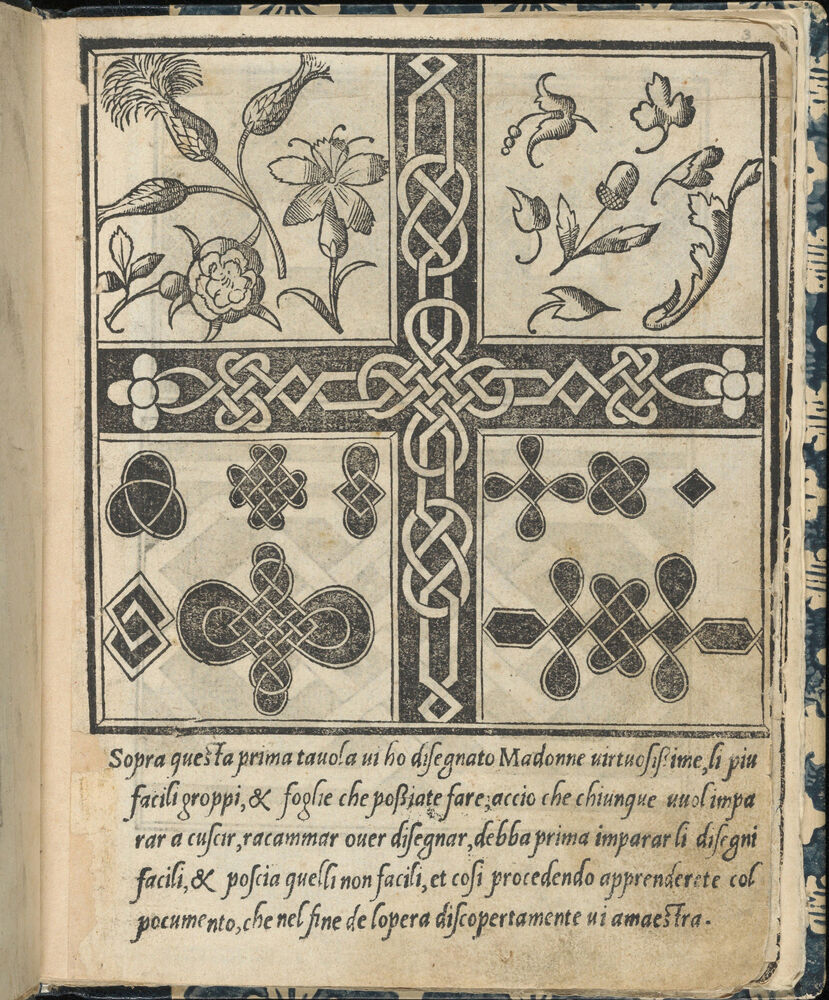 3
Sopra questa prima tauola ui ho disegnato Madonne uirtuosissime, li piu
facili groppi, & foglie che poßiate fare; accio che chiunque uuol impa
rar a cuscir, racammar ouer disegnar, debba prima imparar li disegni
facili, & poscia quelli non facili, et cosi procedendo apprenderete col
pocumento, che nel fine de lopera discopertamente ui amaestra.